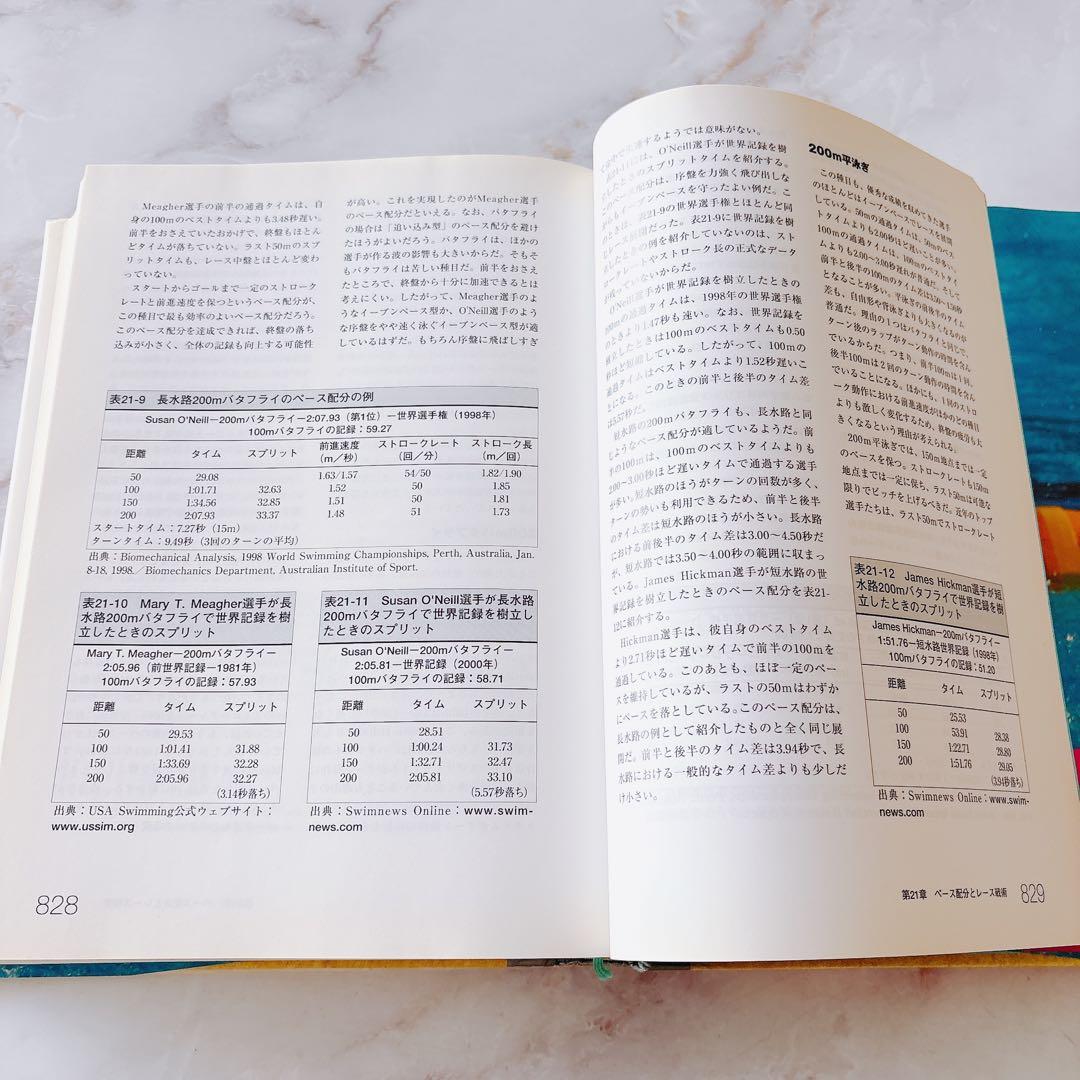 Meagher選手の前半の通過タイムは、自
身の100mのベストタイムよりも3.48秒遅い。
前半をおさえていたおかげで、終盤もほとん
どタイムが落ちていない。ラスト50mのスプ
リットタイムも、レース中盤とほとんど変わ
っていない。
スタートからゴールまで一定のストローク
レートと前進速度を保つというペース配分が、
この種目で最も効率のよいペース配分だろう。
このペース配分を達成できれば、終盤の落ち
込みが小さく、全体の記録も向上する可能性
が高い。これを実現したのがMeagher選手
のペース配分だといえる。なお、バタフライ
の場合は「追い込み型」のペース配分を避け
たほうがよいだろう。バタフライは、ほかの
選手が作る波の影響も大きいからだ。そもそ
もバタフライは苦しい種目だ。前半をおさえ
たところで、終盤から十分に加速できるとは
考えにくい。したがって、Meagher選手のよ
うなイーブンペース型か、O'Neill選手のよう
な序盤をやや速く泳ぐイーブンペース型が適
しているはずだ。もちろん序盤に飛ばしすぎ
表21-9 長水路200mバタフライのペース配分の例
Susan O'Neill－200mバタフライ－2:07.93（第1位）－世界選手権（1998年）
100mバタフライの記録：59.27
距離 タイム スプリット 前進速度（m／秒） ストロークレート（回／分） ストローク長（m／回）
50 29.08 1.63/1.57 54/50 1.82/1.90
100 1:01.71 32.63 1.52 50 1.85
150 1:34.56 32.85 1.51 50 1.81
200 2:07.93 33.37 1.48 51 1.73
スタートタイム：7.27秒（15m）
ターンタイム：9.49秒（3回のターンの平均）
出典：Biomechanical Analysis, 1998 World Swimming Championships, Perth, Australia, Jan.
8-18, 1998.／Biomechanics Department, Australian Institute of Sport.
表21-10 Mary T. Meagher選手が長
水路200mバタフライで世界記録を樹
立したときのスプリット
Mary T. Meagher－200mバタフライ－
2:05.96（前世界記録－1981年）
100mバタフライの記録：57.93
距離 タイム スプリット
50 29.53
100 1:01.41 31.88
150 1:33.69 32.28
200 2:05.96 32.27
（3.14秒落ち）
出典：USA Swimming公式ウェブサイト：
www.ussim.org
表21-11 Susan O'Neill選手が長水路
200mバタフライで世界記録を樹立し
たときのスプリット
Susan O'Neill－200mバタフライ－
2:05.81－世界記録（2000年）
100mバタフライの記録：58.71
距離 タイム スプリット
50 28.51
100 1:00.24 31.73
150 1:32.71 32.47
200 2:05.81 33.10
（5.57秒落ち）
出典：Swimnews Online：www.swim-
news.com
828
するようでは意味がない。
は、O'Neill選手が世界記録を樹
したときのスプリットタイムを紹介する。
ペース配分は、序盤を力強く飛び出しな
がらもイーブンペースを守ったよい例だ。こ
のときは、表21-9の世界選手権とほとんど同
じレース展開だった。表21-9に世界記録を樹
立したときの例を紹介していないのは、スト
ロークレートやストローク長の正式なデータ
が残っていないからだ。
O'Neill選手が世界記録を樹立したときの
100mの通過タイムは、1998年の世界選手権
のときより1.47秒も速い。なお、世界記録を
樹立したときは100mのベストタイムも0.50
秒ほど短縮している。したがって、100mの
通過タイムはベストタイムより1.52秒遅いこ
とになる。このときの前半と後半のタイム差
は5.57秒だ。
短水路の200mバタフライも、長水路と同
じようなペース配分が適しているようだ。前
半の100mは、100mのベストタイムよりも
2.00～3.00秒ほど遅いタイムで通過する選手
が多い。短水路のほうがターンの回数が多く、
ターンの勢いも利用できるため、前半と後半
のタイム差は短水路のほうが小さい。長水路
における前後半のタイム差は3.00～4.50秒だ
が、短水路では3.50～4.00秒の範囲に収まっ
ている。James Hickman選手が短水路の世
界記録を樹立したときのペース配分を表21-
12に紹介する。
Hickman選手は、彼自身のベストタイム
より2.71秒ほど遅いタイムで前半の100mを
通過している。このあとも、ほぼ一定のペー
スを維持しているが、ラストの50mはわずか
にペースを落としている。このペース配分は、
長水路の例として紹介したものと全く同じ展
開だ。前半と後半のタイム差は3.94秒で、長
水路における一般的なタイム差よりも少しだ
け小さい。
200m平泳ぎ
この種目も、優秀な成績を収めてきた選手
のほとんどはイーブンペースでレースを展開
している。50mの通過タイムは、50mのベス
トタイムよりも2.00秒ほど遅いことが多い。
100mの通過タイムは、100mのベストタイ
ムよりも2.00～3.00秒遅れが普通だ。そして
前半と後半の100mのタイム差は3.50～4.50秒
となることが多い。平泳ぎの前後半のタイム
差も、自由形や背泳ぎよりも大きくなるのが
普通だ。理由の1つはバタフライと同じで、
ターン後のラップがターン動作の時間を含ん
でいるからだ。つまり、前半100mは1回、
後半100mは2回のターン動作の時間を含ん
でいることになる。ほかにも、1回のストロ
ーク動作における前進速度がほかのどの種目
よりも激しく変化するため、終盤の疲労も大
きくなるという理由が考えられる。
200m平泳ぎでは、150m地点までは一定
のペースを保つ。ストロークレートも150m
地点までは一定に保ち、ラスト50mは可能な
限りでピッチを上げるべきだ。近年のトップ
選手たちは、ラスト50mでストロークレート
表21-12 James Hickman選手が短
水路200mバタフライで世界記録を樹
立したときのスプリット
James Hickman－200mバタフライ－
1:51.76－短水路世界記録（1998年）
100mバタフライの記録：51.20
距離 タイム スプリット
50 25.53
100 53.91 28.38
150 1:22.71 28.80
200 1:51.76 29.05
（3.94秒落ち）
出典：Swimnews Online：www.swim-
news.com
第21章 ペース配分とレース戦術 829